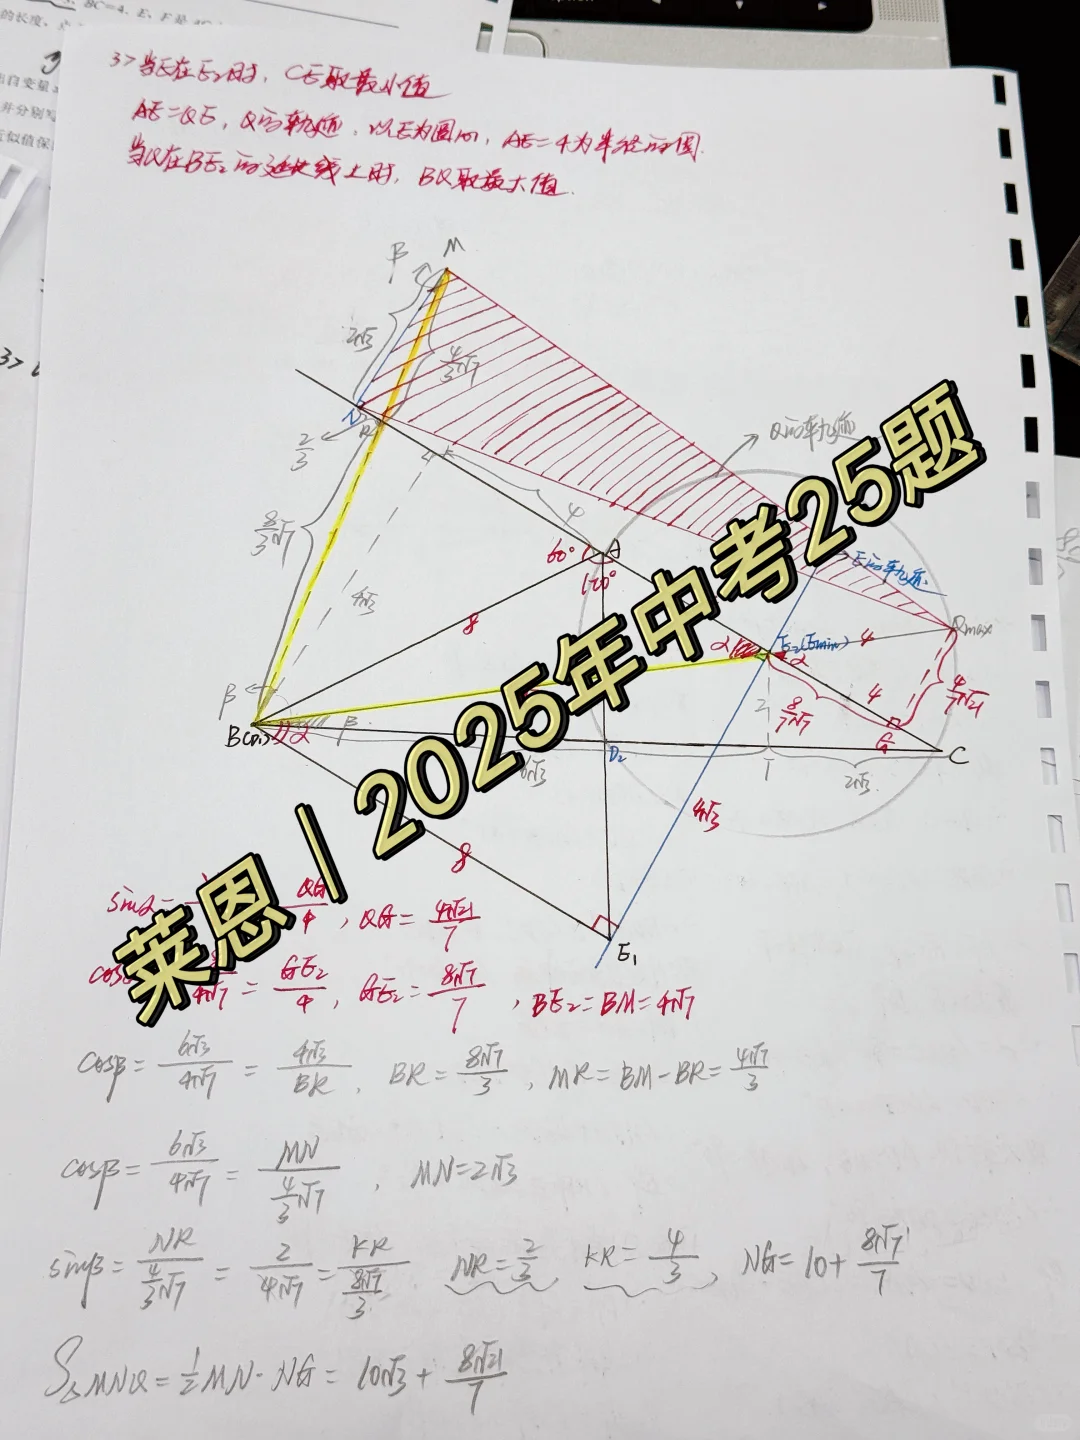 3> 当E在E₂时, CE取最小值
AE=QE, Q的轨迹, 以E为圆心, AE=4为半径的圆.
当Q在BE₂的延长线上时, BQ取最大值.
β M
2√3
4/3√7
N
R
2/3
Q的轨迹
4
A
60°
120°
8/3√7
4√3
8
E的轨迹
Qmax
α
E₂(Emin) 4
α
2
8/7√7
4
4/7√21
G
β
B(D₁)
α
β
6√3
D₂
2√3
C
4√3
8
E₁
莱恩 | 2025年中考25题
sinα=
QG/4, QG= 4√21/7
4√7 = GE₂/4, GE₂= 8√7/7, BE₂=BM=4√7
cosβ= 6√3/4√7 = 4√3/BR, BR= 8√7/3, MR=BM-BR= 4√7/3
cosβ= 6√3/4√7 = MN/(4/3√7), MN=2√3
sinβ= NR/(4/3√7) = 2/4√7 = KR/(8√7/3) NR=2/3 KR=4/3, NG=10+ 8√7/7
S△MNQ=1/2MN·NG= 10√3+ 8√21/7